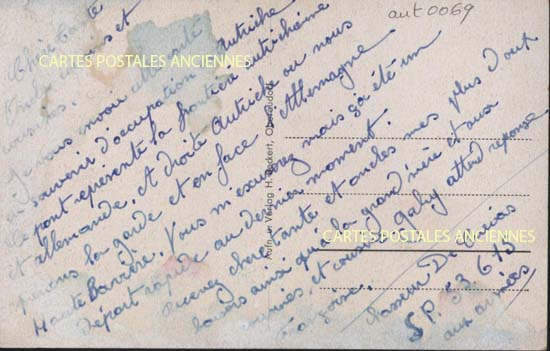 aut 0069
CARTES POSTALES ANCIENNES
Chère tante
oncle et
cousines.
Je vous envoie cette carte
en souvenir d'occupation Autriche
Le pont représente la frontière autrichienne
et allemande, à droite Autriche ou nous
prenons la garde et en face Allemagne
Haute Bavière. Vous m'excuserez mais ça été un
Départ rapide au dernier moment.
Recevez chère tante et oncles mes plus doux
baisers ainsi qu'à la grand mère et aux
cousines, et cousin Gaby attend réponse
Chasseur
S.P. 53.673
aux armées
Aufn. u. Verlag H. Oberaudorf
CARTES POSTALES ANCIENNES